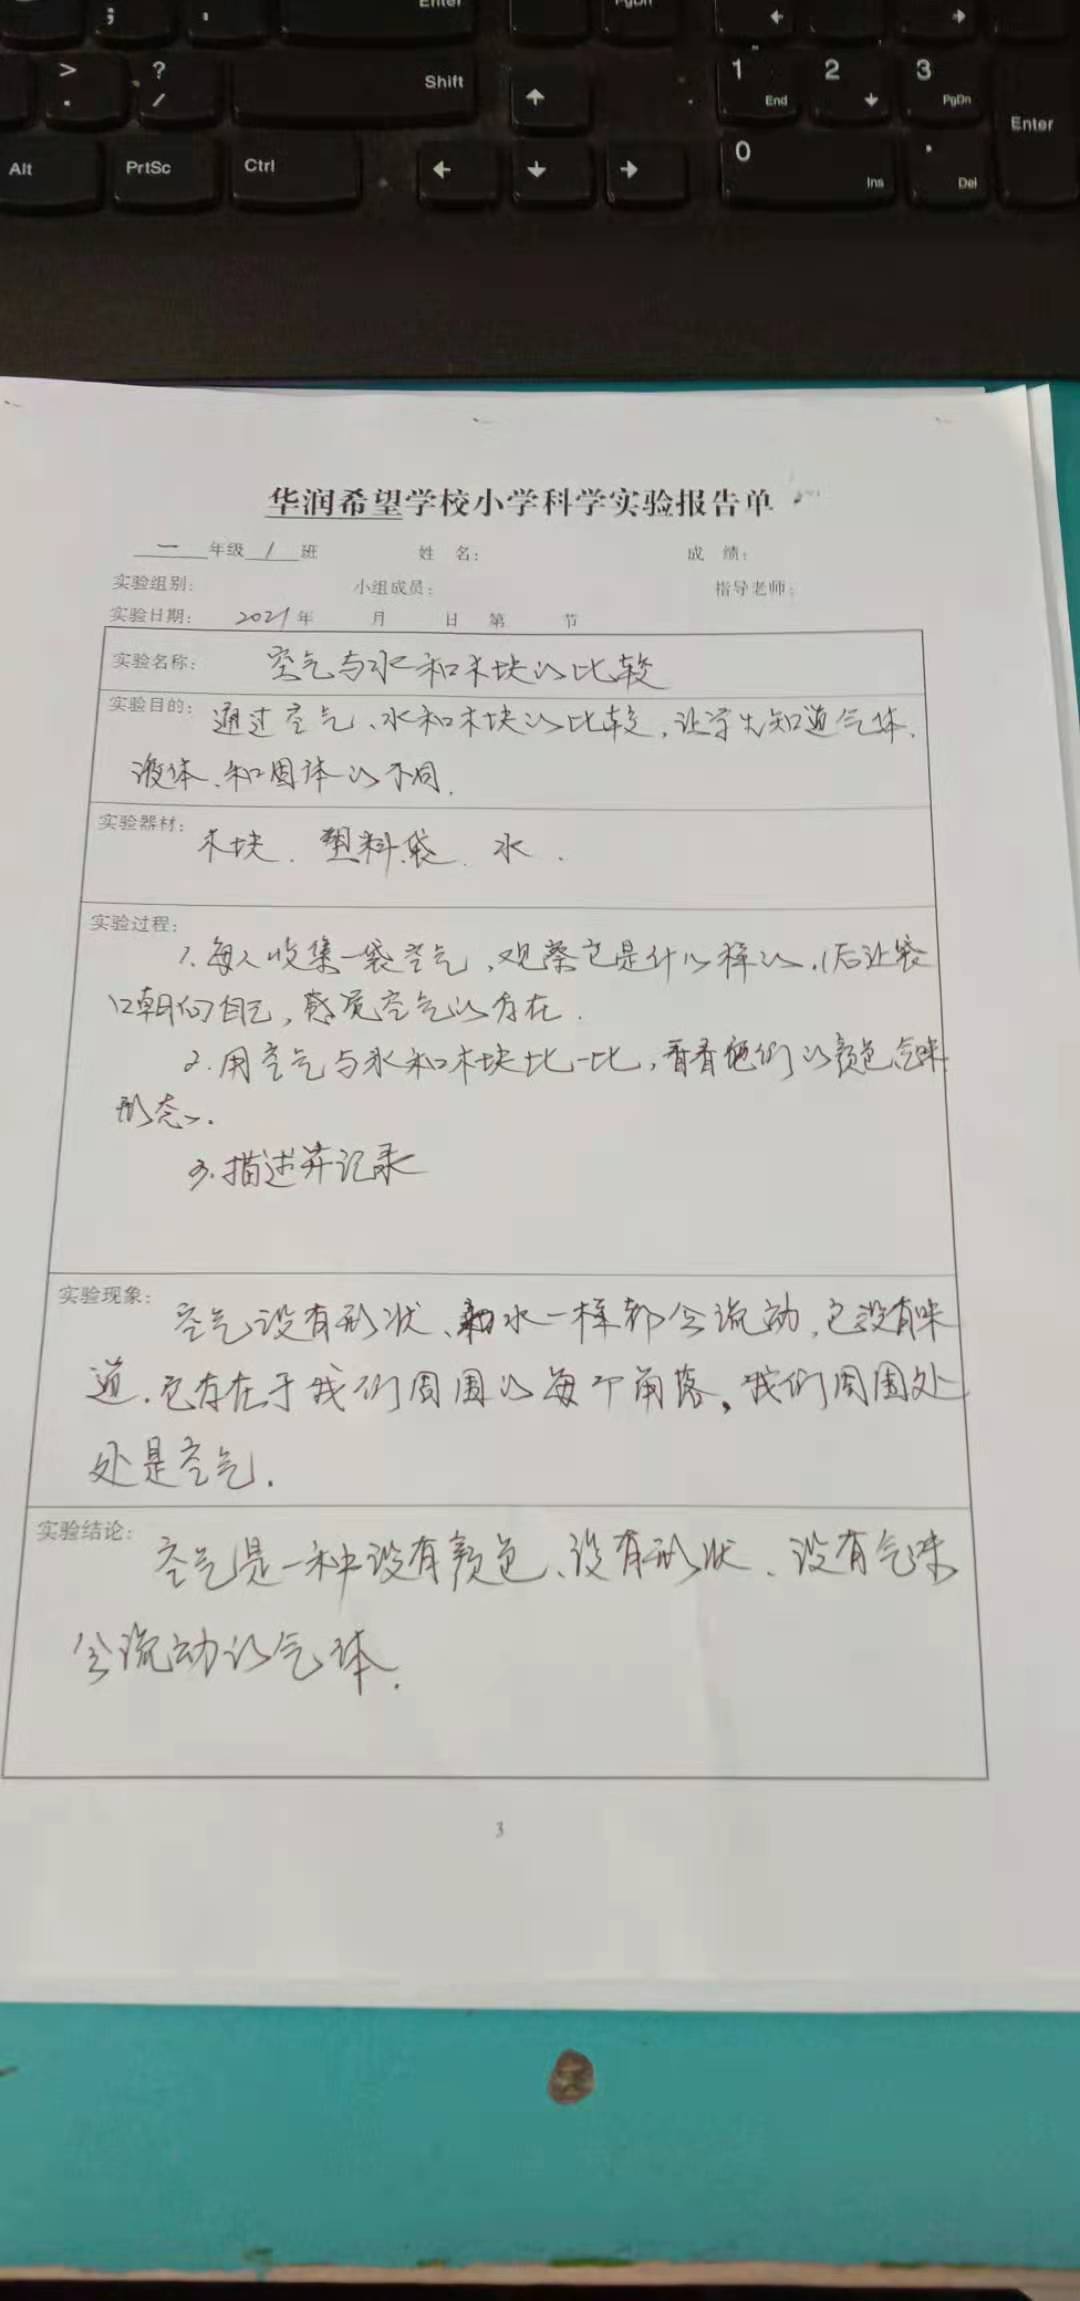 Enter
PgDn
; ,
> . ? / Shift ↑ 1 End 2 ↓ 3 PgDn Enter
Alt PrtSc Ctrl ← ↓ → 0 Ins . Del
华润希望学校小学科学实验报告单
一年级1班 姓 名： 成 绩：
实验组别： 小组成员： 指导老师：
实验日期： 2021年 月 日 第 节
实验名称： 空气与水和木块的比较
实验目的： 通过空气、水和木块的比较，让学生知道气体、
液体、和固体的不同.
实验器材： 木块. 塑料袋. 水.
实验过程：
1.每人收集一袋空气，观察它是什么样的，后让袋
口朝自己，感觉空气的存在.
2.用空气与水和木块比一比，看看他们的颜色气味
形态.
3.描述并记录
实验现象： 空气没有形状、和水一样都会流动，它没有味
道.它存在于我们周围的每个角落，我们周围处
处是空气.
实验结论： 空气是一种没有颜色、没有形状、没有气味
会流动的气体.
3